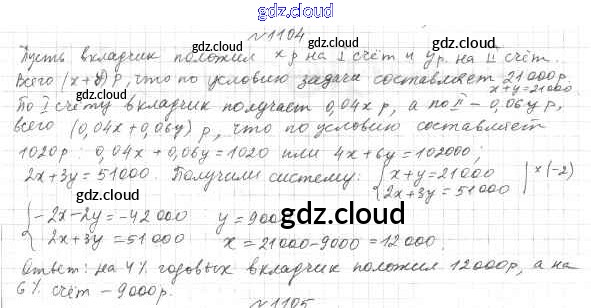 gdz.cloud
№1104
gdz.cloud gdz.cloud
Пусть вкладчик положил x р на I счёт и y р. на II счёт.
Всего (x+y) р, что по условию задачи составляет 21000р.
x+y=21000
gdz.cloud gdz.cloud
По I счёту вкладчик получает 0,04x р, а по II – 0,06y р,
всего (0,04x+0,06y) р, что по условию составляет
gdz.cloud gdz.cloud
1020р: 0,04x+0,06y=1020 или 4x+6y=102000;
2x+3y=51000. Получили систему: { x+y=21000 | ×(-2)
2x+3y=51000
gdz.cloud gdz.cloud
{ -2x-2y=-42000 y=9000
2x+3y=51000 x=21000-9000=12000.
gdz.cloud
Ответ: на 4% годовых вкладчик положил 12000р, а на
6% счёт – 9000р.
№1105